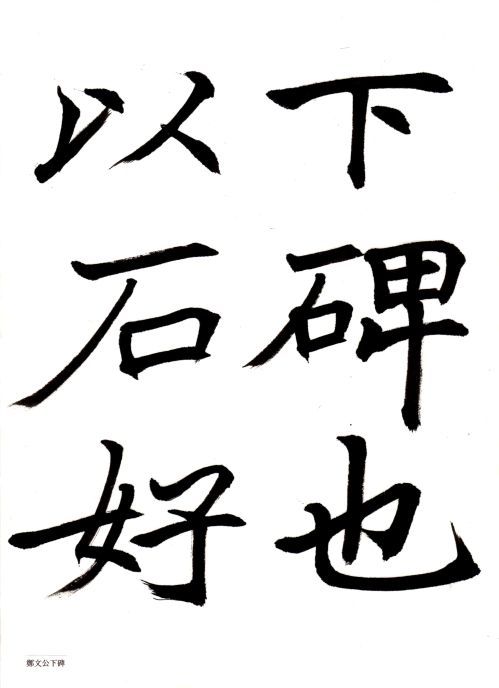 下碑也
以石好
鄭文公下碑